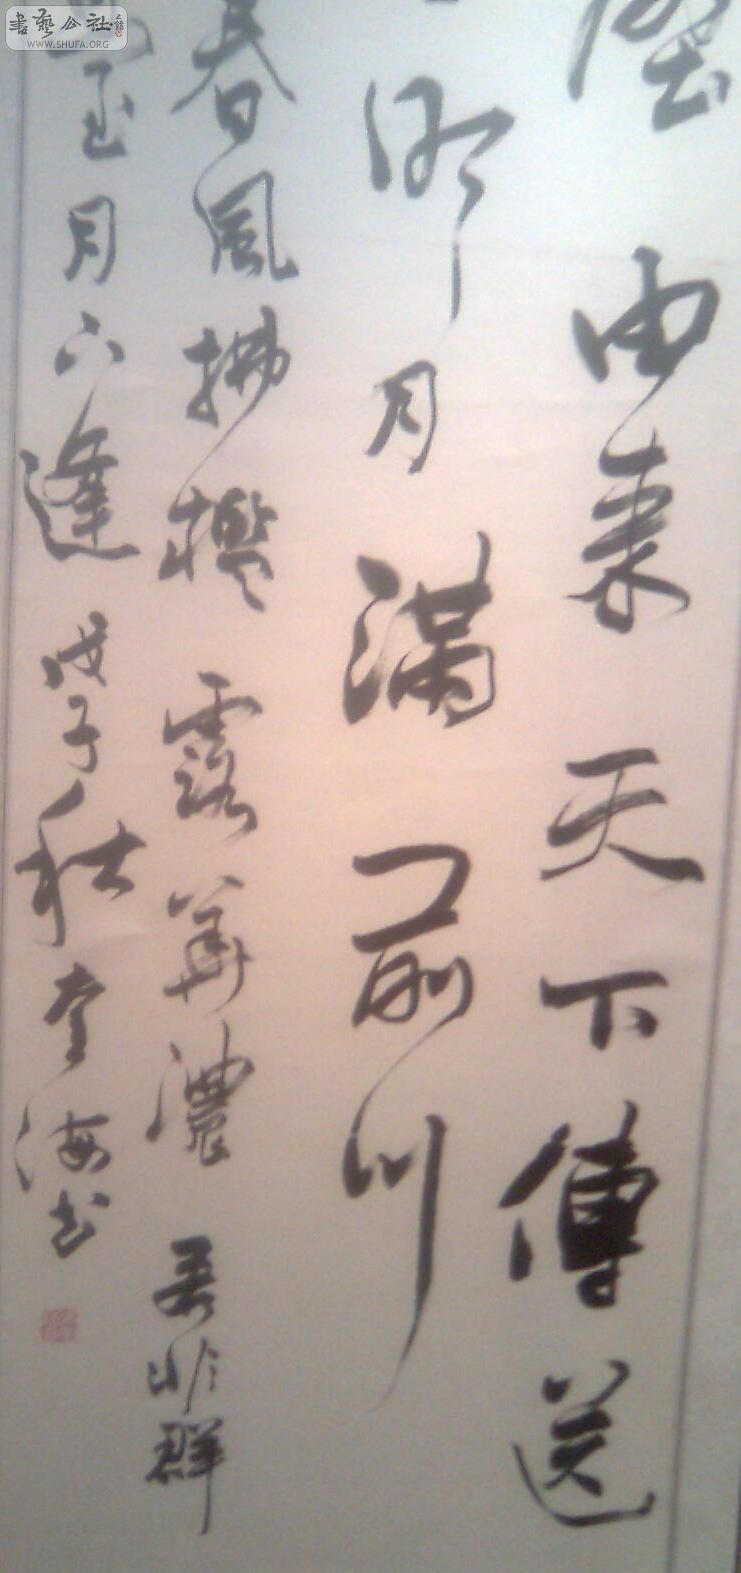 書藝公社
WWW.SHUFA.ORG
由來天下傳送
明月滿前川
春風拂檻露華濃 若非群
臺月下逢 戊子秋奎海书